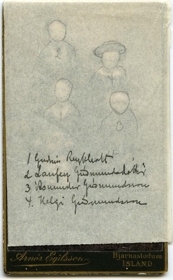 1 Guðrún Reykholt
2 Laufey Guðmundsdóttir
3 Ásmundur Guðmundsson
4. Helgi Guðmundsson
Arnór Egilsson
Bjarnastöðum
ISLAND